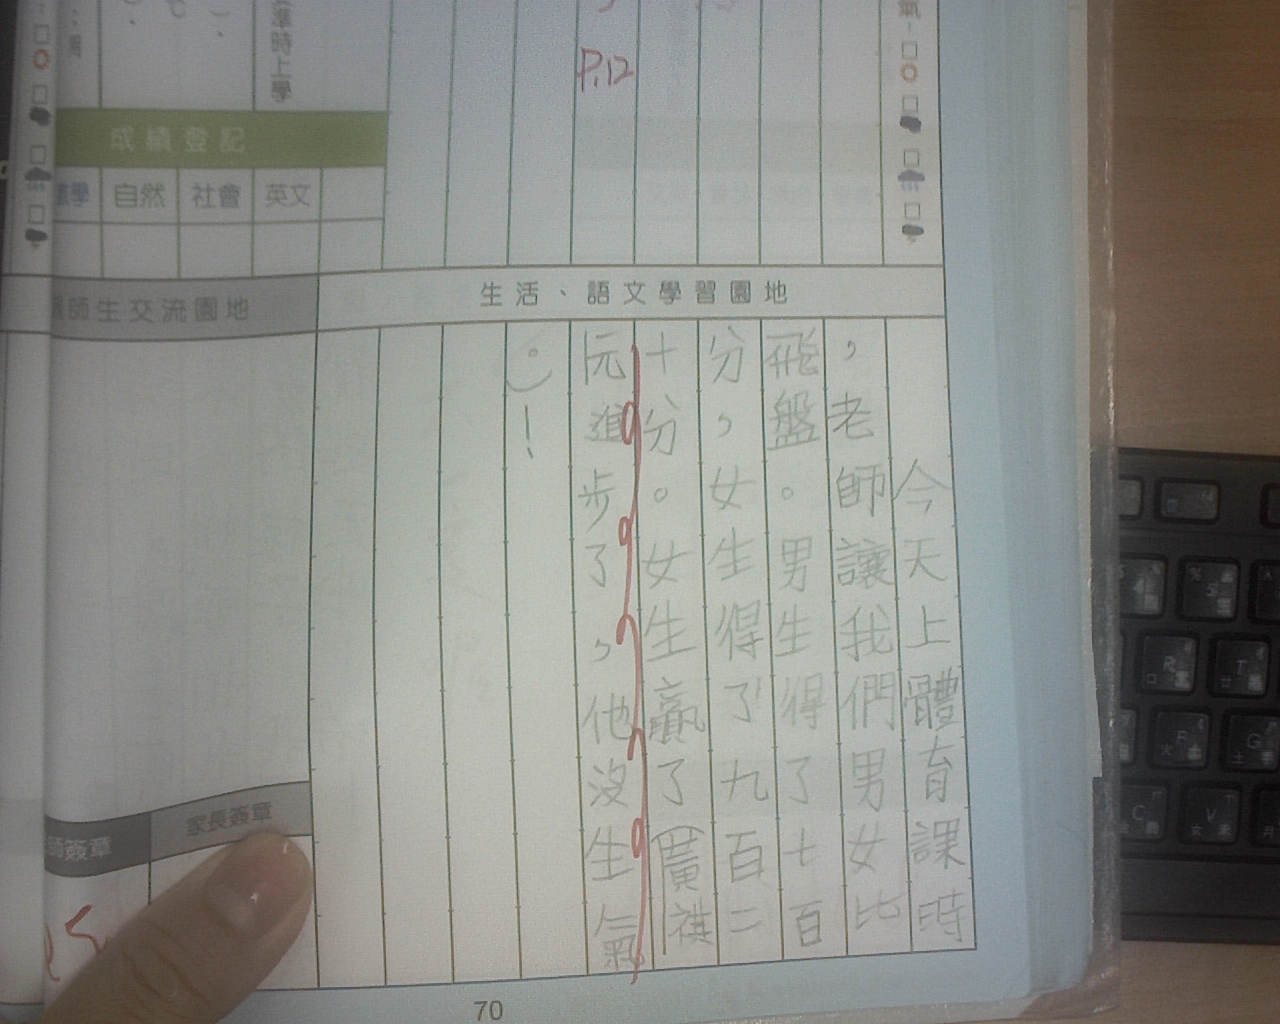 準時上學
P.12
成績登記
數學 自然 社會 英文
師生交流園地
生活、語文學習園地
今天上體育課時
，老師讓我們男女比
飛盤。男生得了七百
分，女生得了九百二
十分。女生贏了
阮進步了，他沒生氣
。！
師簽章
家長簽章
70